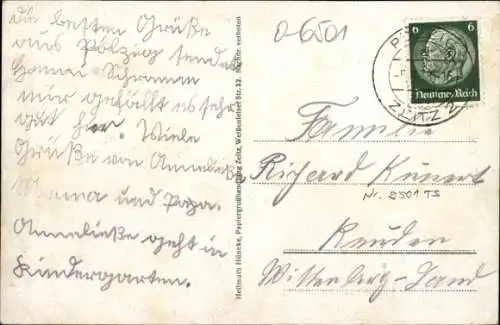 die besten Grüße
aus Pölzig senden
Hanni Schramm
mir gefällt es sehr
gut hier. Viele
Grüße von Anneließe
Mama und Papa.
Anneließe geht in
Kindergarten.
Hellmuth Hüneke, Papiergroßhandlung Zeitz, Weißenfelser Str. 23. Nachdr. verboten
0-6501
6 6
Deutsches Reich
ZEITZ 2
Familie
Richard Kunert
Nr. 2501 TS
Reuden
Wittenberg-Land